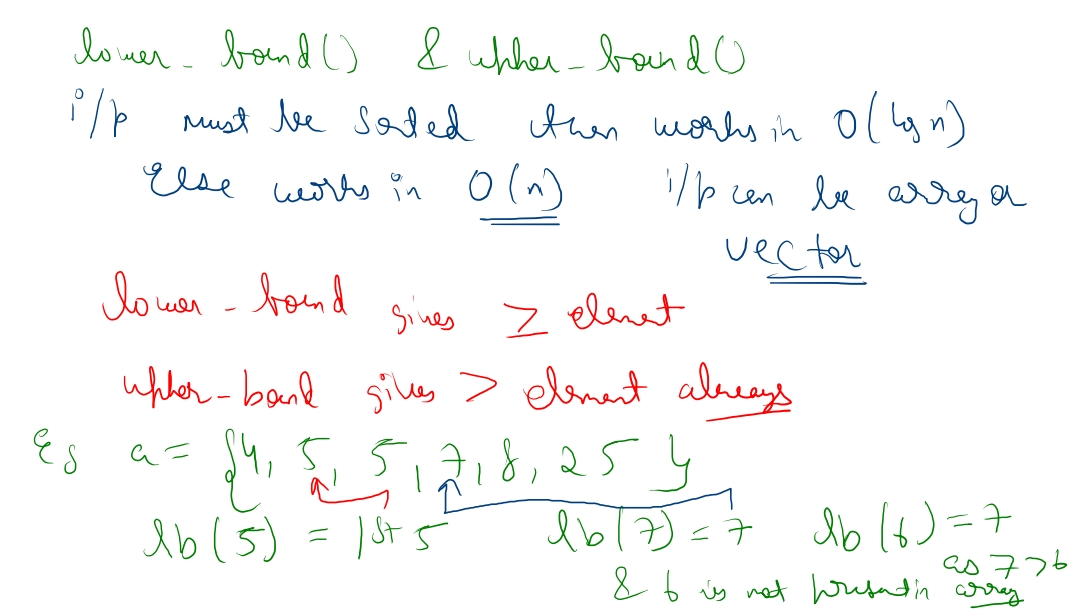 lower_bound() & upper_bound()
i/p must be sorted then works in O(log n)
Else works in O(n) i/p can be array or
vector
lower_bound gives ≥ element
upper_bound gives > element always
Eg a = {4, 5, 5, 7, 8, 25}
lb(5) = 1st 5 lb(7) = 7 lb(6) = 7
as 7 > 6
& 6 is not present in array